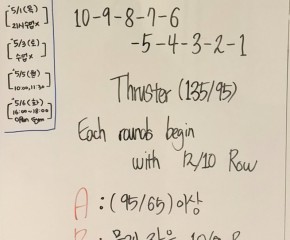 *5/1(목)
21시 수업 x
*5/3(토)
수업 x
*5/5(월)
10:00, 11:30
*5/6(화)
16:00~18:00
open gym
10-9-8-7-6
-5-4-3-2-1
Thruster (135/95)
Each rounds begin
with 12/10 Row
A : (95/65) 이상